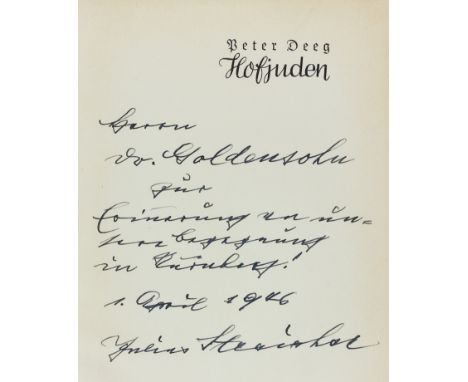 Peter Deeg
Hofjuden
Herrn
Dr. Goldensohn
zur
Erinnerung an un-
sere Begegnung
in Nürnberg!
1. April 1946
Julius Streicher